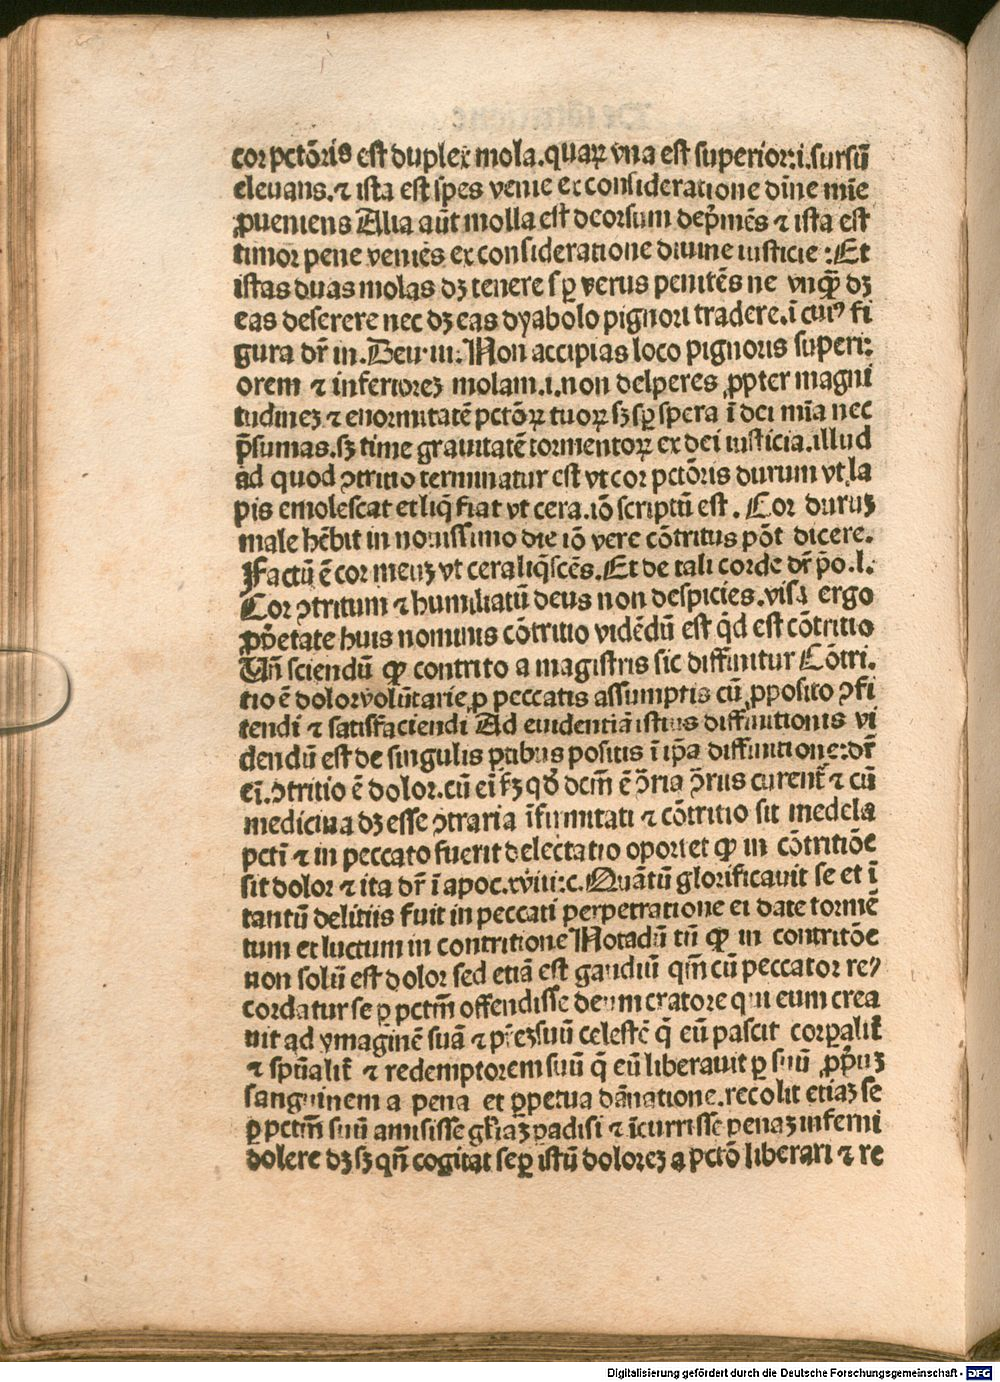 cor pctōris est duplex mola.quaꝝ vna est superior:.i.sursū
eleuans.⁊ ista est spes venie ex consideratione diīne mīe
ꝓueniens Alia aūt molla est deorsum dep̄mēs ⁊ ista est
timor pene veniēs ex consideratione diuine iusticie :Et
istas duas molas dꝫ tenere sꝑ verus penitēs ne vnqꝫ dꝫ
eas deserere nec dꝫ eas dyabolo pignori tradere.ī cuiꝰ fi
gura dr̄ in.Deu. Non accipias loco pignoris superi:
orem ⁊ inferioreꝫ molam.i.non delperes ꝓpter magni
tudineꝫ ⁊ enormitatē pctōꝝ tuoꝝ sꝫ sꝑ spera ī dei mīa nec
p̄sumas.sꝫ time grauitatē tormentoꝝ ex dei iusticia.illud
ad quod ꝯtritio terminatur est vt cor pctōris durum vt la
pis emolescat et liq̄fiat vt cera.iō scriptū est . Cor duruꝫ
male hēbit in nouissimo die iō vere cōtritus pōt dicere.
Factū ē cor meuꝫ vt cera liq̄scēs.Et de tali corde dr̄ p̄o.l.
Cor ꝯtritum ⁊ humiliatū deus non despicies.visa ergo
ꝓp̄etate huis nominis cōtritio vidēdū est qͥd est cōtritio
Vn̄ sciendū ꝙ contrito a magistris sic diffinitur Cōtri.
tio ē dolor volūtarie ꝓ peccatis assumptis cū ꝓposito ꝯfi
tendi ⁊ satisfaciendi Ad euidentiā istius diffinitionis vi
dendū est de singulis ꝑtibus positis ī ip̄a diffinitione:dr̄
eī.ꝯtritio ē dolor.cū eī ẜꝫ qd̄ dcm̄ ē ꝯ̄ria ꝯ̄riis curent̄ ⁊ cū
medicina dꝫ esse ꝯtraria īfirmitati ⁊ cōtritio sit medela
pcti ⁊ in peccato fuerit delectatio oportet ꝙ in cōtritiōe
sit dolor ⁊ ita dr̄ ī apoc.xviii:c.Quātū glorificauit se et ī
tantū delitiis fuit in peccati perpetratione ei date tormē
tum et luctum in contritione Notadū tn̄ ꝙ in contritōe
non solū est dolor sed etiā est gaudiū qm̄ cū peccator re⸗
cordatur se ꝑ pctm̄ offendisse deum cratore qui eum crea
uit ad ymaginē suā ⁊ pr̄eꝫ suū celestē q̄ eū pascit corꝑalit̄
⁊ spūalit̄ ⁊ redemptorem suū q̄ eū liberauit ꝑ suū ꝓp̄uꝫ
sanguinem a pena et ꝑpetua dānatione.recolit etiaꝫ se
ꝑ pctm̄ suū amisisse gl̄iaꝫ ꝑadisi ⁊ īcurrisse penaꝫ inferni
dolere dꝫ sꝫ qn̄ cogitat seꝑ istū doloreꝫ a pctō liberari ⁊ re
Digitalisierung gefördert durch die Deutsche Forschungsgemeinschaft - DFG